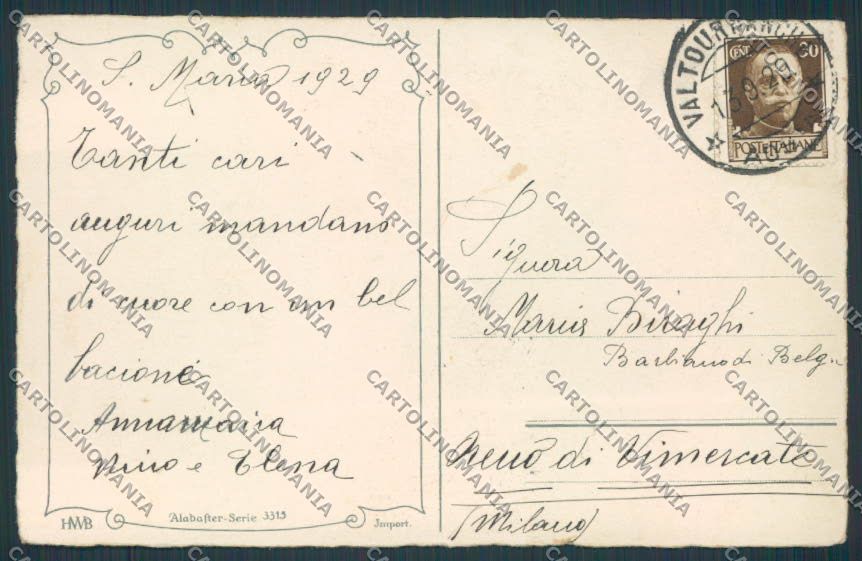 S. Maria 1929
Tanti cari
auguri mandano
di cuore con un bel
bacione
Annamaria
Nino e Elena
HWB
Alabaster-Serie 3313
Import.
VALTOURNANCHE
AOSTA
CENT 30
POSTE ITALIANE
Signora
Maria Biraghi
Barbiano di Belg.
di Vimercate
(Milano)
CARTOLINOMANIA